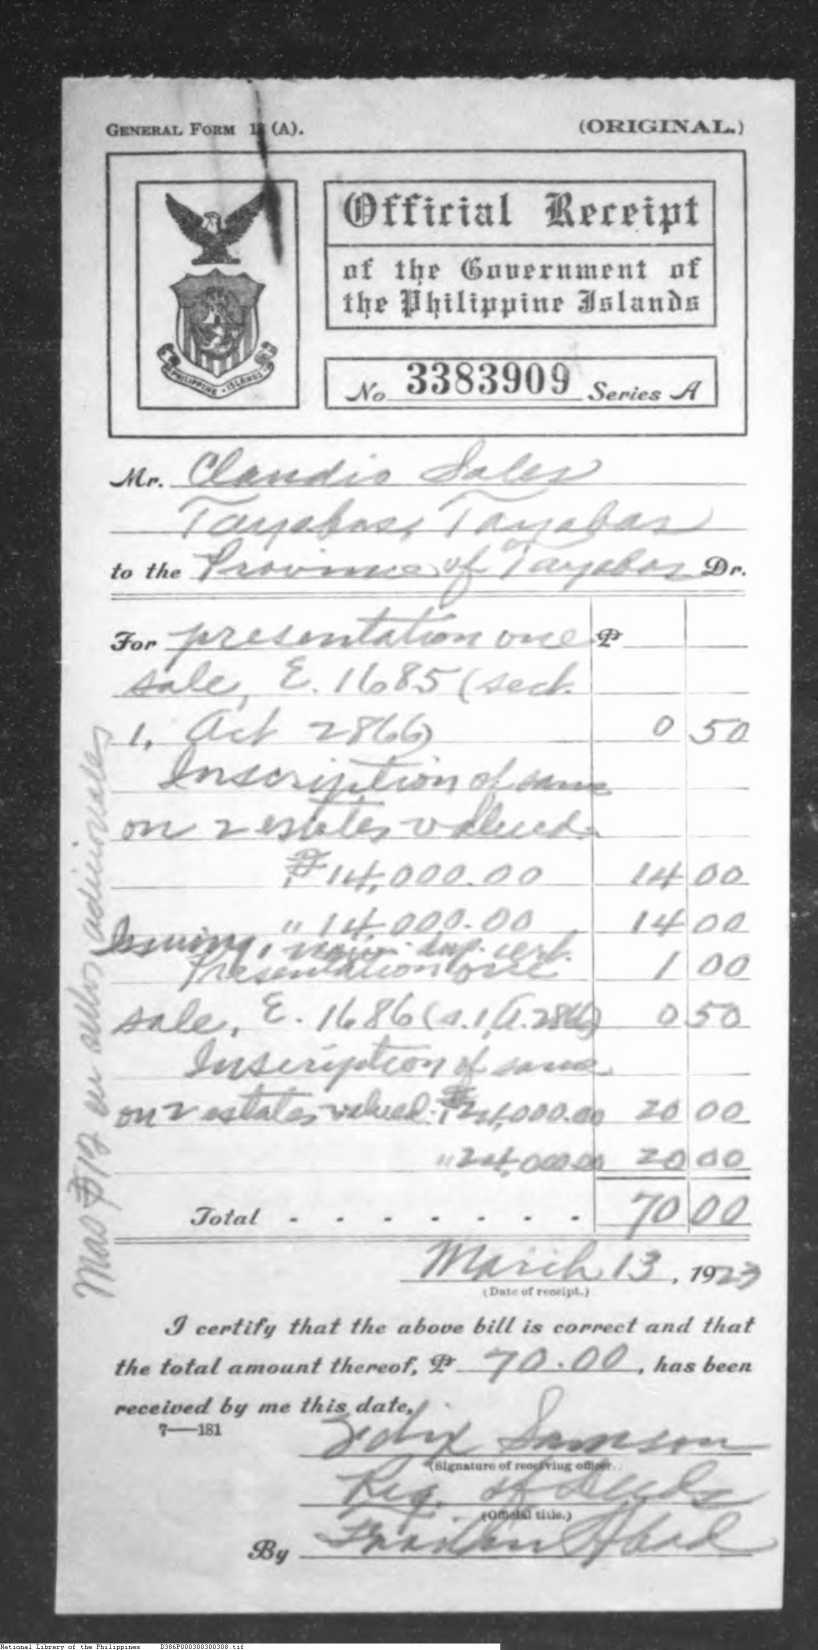 GENERAL FORM 13 (A).
(ORIGINAL.)
PHILIPPINE ISLANDS
Official Receipt
of the Government of
the Philippine Islands
No 3383909 Series A
Mr. Claudio Sales
Tayabas, Tayabas
to the Province of Tayabas Dr.
For presentation one ₱
sale, E. 1685 (sect.
1, Act 2866) 0 50
Inscription of same
on 2 estates valued
₱14,000.00 14 00
" 14,000.00 14 00
Issuing, imp. cert.
Presentation one 1 00
sale, E. 1686 (s.1, A. 2866) 0 50
Inscription of same
on 2 estates valued ₱24,000.00 20 00
" 24,000.00 20 00
Total - - - - - - - 70 00
Mas ₱12 en sellos adicionales
March 13, 1923
(Date of receipt.)
I certify that the above bill is correct and that
the total amount thereof, ₱ 70.00, has been
received by me this date.
7—181
Felix Samson
(Signature of receiving officer.)
Reg. of Deeds
(Official title.)
By Abad
National Library of the Philippines D386P000300300308.tif